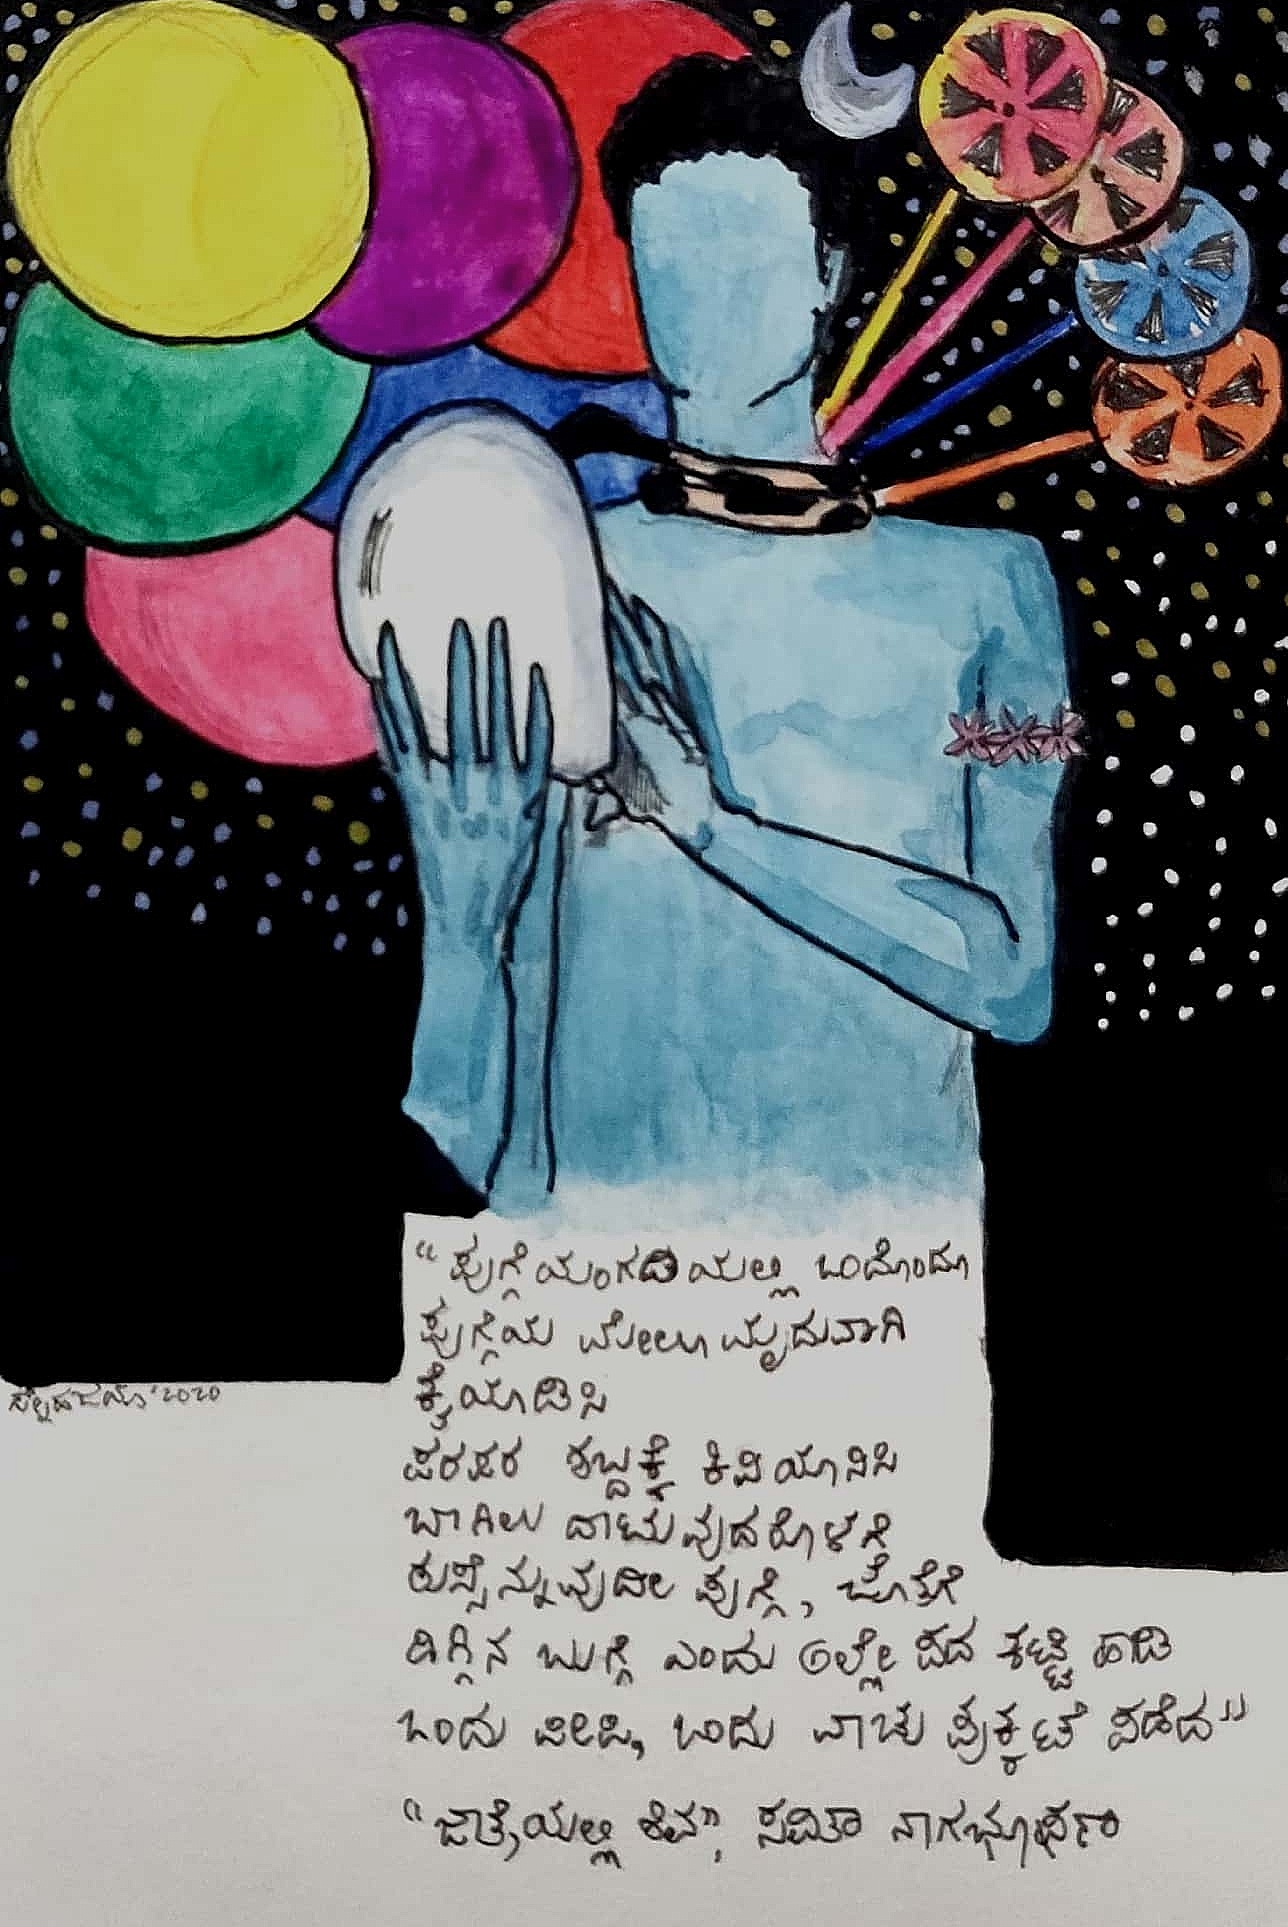 “ಪುಗ್ಗೆಯಂಗಡಿಯಲ್ಲಿ ಒಂದೊಂದೂ
ಪುಗ್ಗೆಯ ಮೇಲೂ ಮೃದುವಾಗಿ
ಕೈಯಾಡಿಸಿ
ಪರಪರ ಶಬ್ದಕ್ಕೆ ಕಿವಿಯಾನಿಸಿ
ಬಾಗಿಲು ದಾಟುವುದರೊಳಗೆ
ಠುಸ್ಸೆನ್ನುವುದೀ ಪುಗ್ಗೆ, ಜೊತೆಗೆ
ಹಿಗ್ಗಿನ ಬುಗ್ಗೆ ಎಂದು ಅಲ್ಲೇ ಪದ ಕಟ್ಟಿ ಹಾಡಿ
ಒಂದು ಪೀಪಿ, ಒಂದು ವಾಚು ಪುಕ್ಕಟೆ ಪಡೆದ”
“ಜಾತ್ರೆಯಲ್ಲಿ ಶಿವ”, ಸವಿತಾ ನಾಗಭೂಷಣ